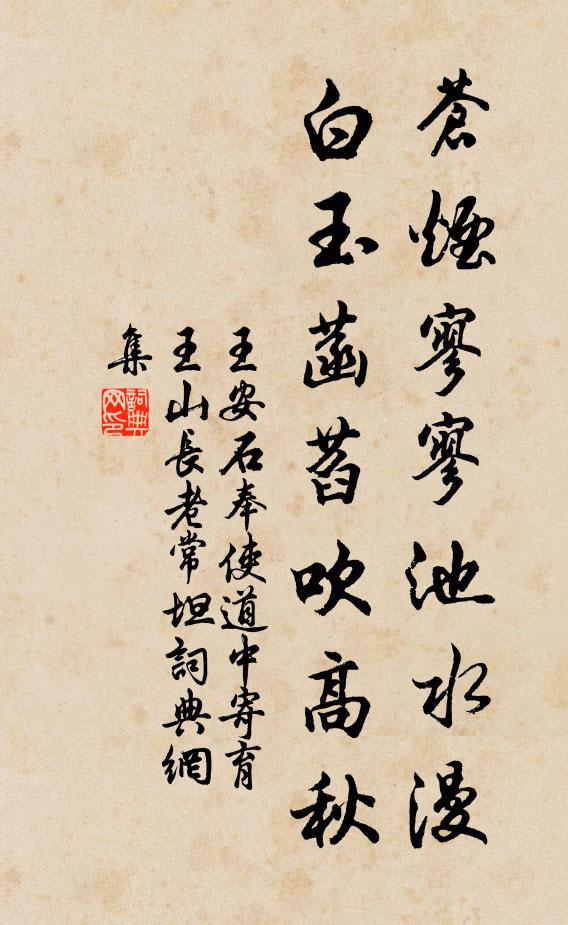 蒼煙寥寥池水漫
白玉菡萏吹高秋
王安石奉使道中寄育
王山長老常坦詞典網
集
詞典
网印